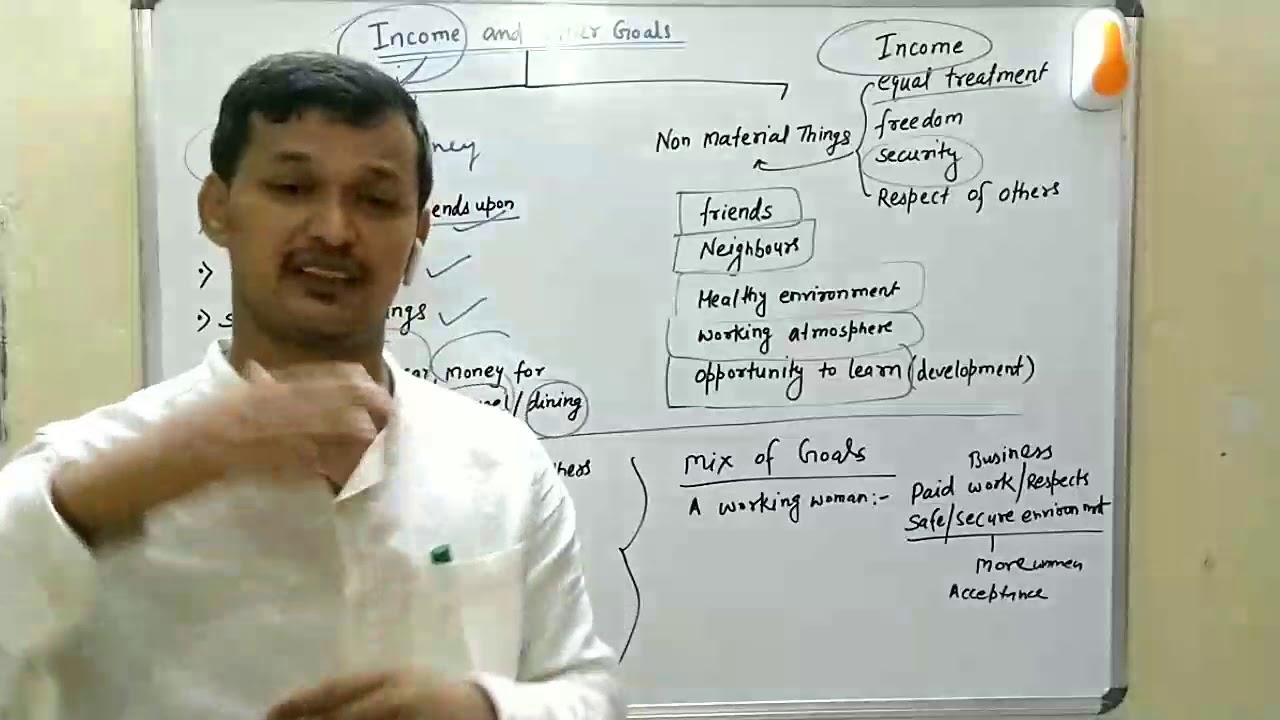 Income and Goals
ney
ends upon
ngs
money for
/ dining
Non Material Things
Income
equal treatment
freedom
security
Respect of others
friends
Neighbours
Healthy environment
working atmosphere
opportunity to learn (development)
Mix of Goals
A working woman:-
Business
Paid work/Respects
Safe/secure environmnt
More women
Acceptance